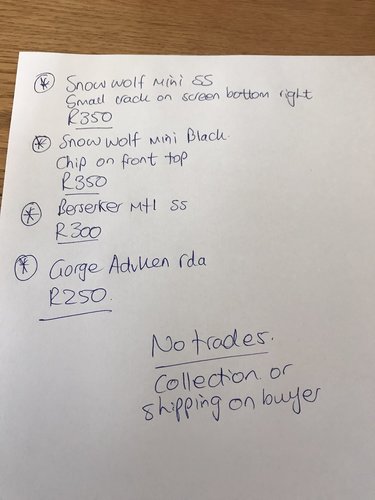 * Snow wolf mini SS
Small crack on screen bottom right
R350
* Snow wolf mini Black.
Chip on front top
R350
* Berserker Mtl SS
R300
* Gorge Advken rda
R250.
No trades.
Collection or
shipping on buyer